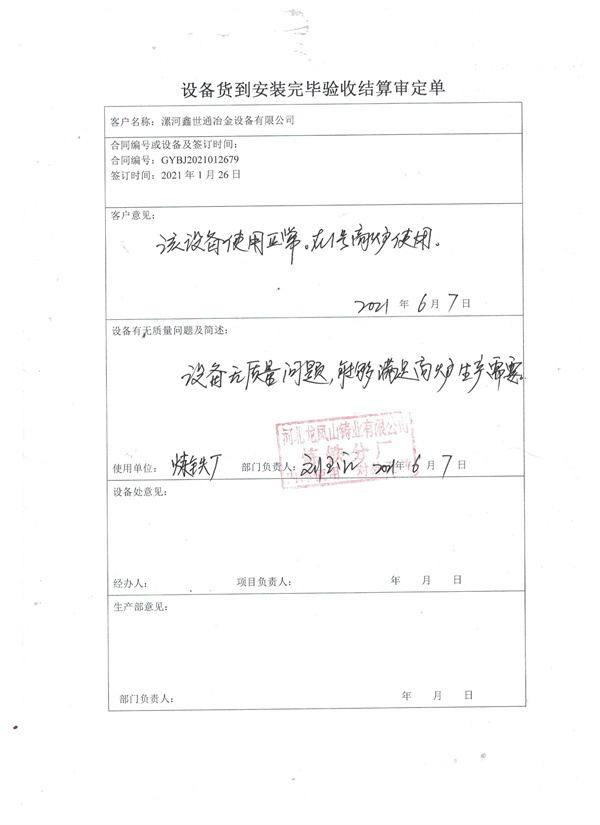 设备货到安装完毕验收结算审定单
客户名称：漯河鑫世通冶金设备有限公司
合同编号或设备及签订时间：
合同编号：GYBJ2021012679
签订时间：2021 年 1 月 26 日
客户意见：
该设备使用正常。在1号高炉使用。
2021 年 6 月 7 日
设备有无质量问题及简述：
设备无质量问题，能够满足高炉生产需要。
河北龙凤山铸业有限公司
使用单位：炼铁厂 部门负责人：刘 2021年 6 月 7 日
设备处意见：
经办人： 项目负责人： 年 月 日
生产部意见：
部门负责人： 年 月 日